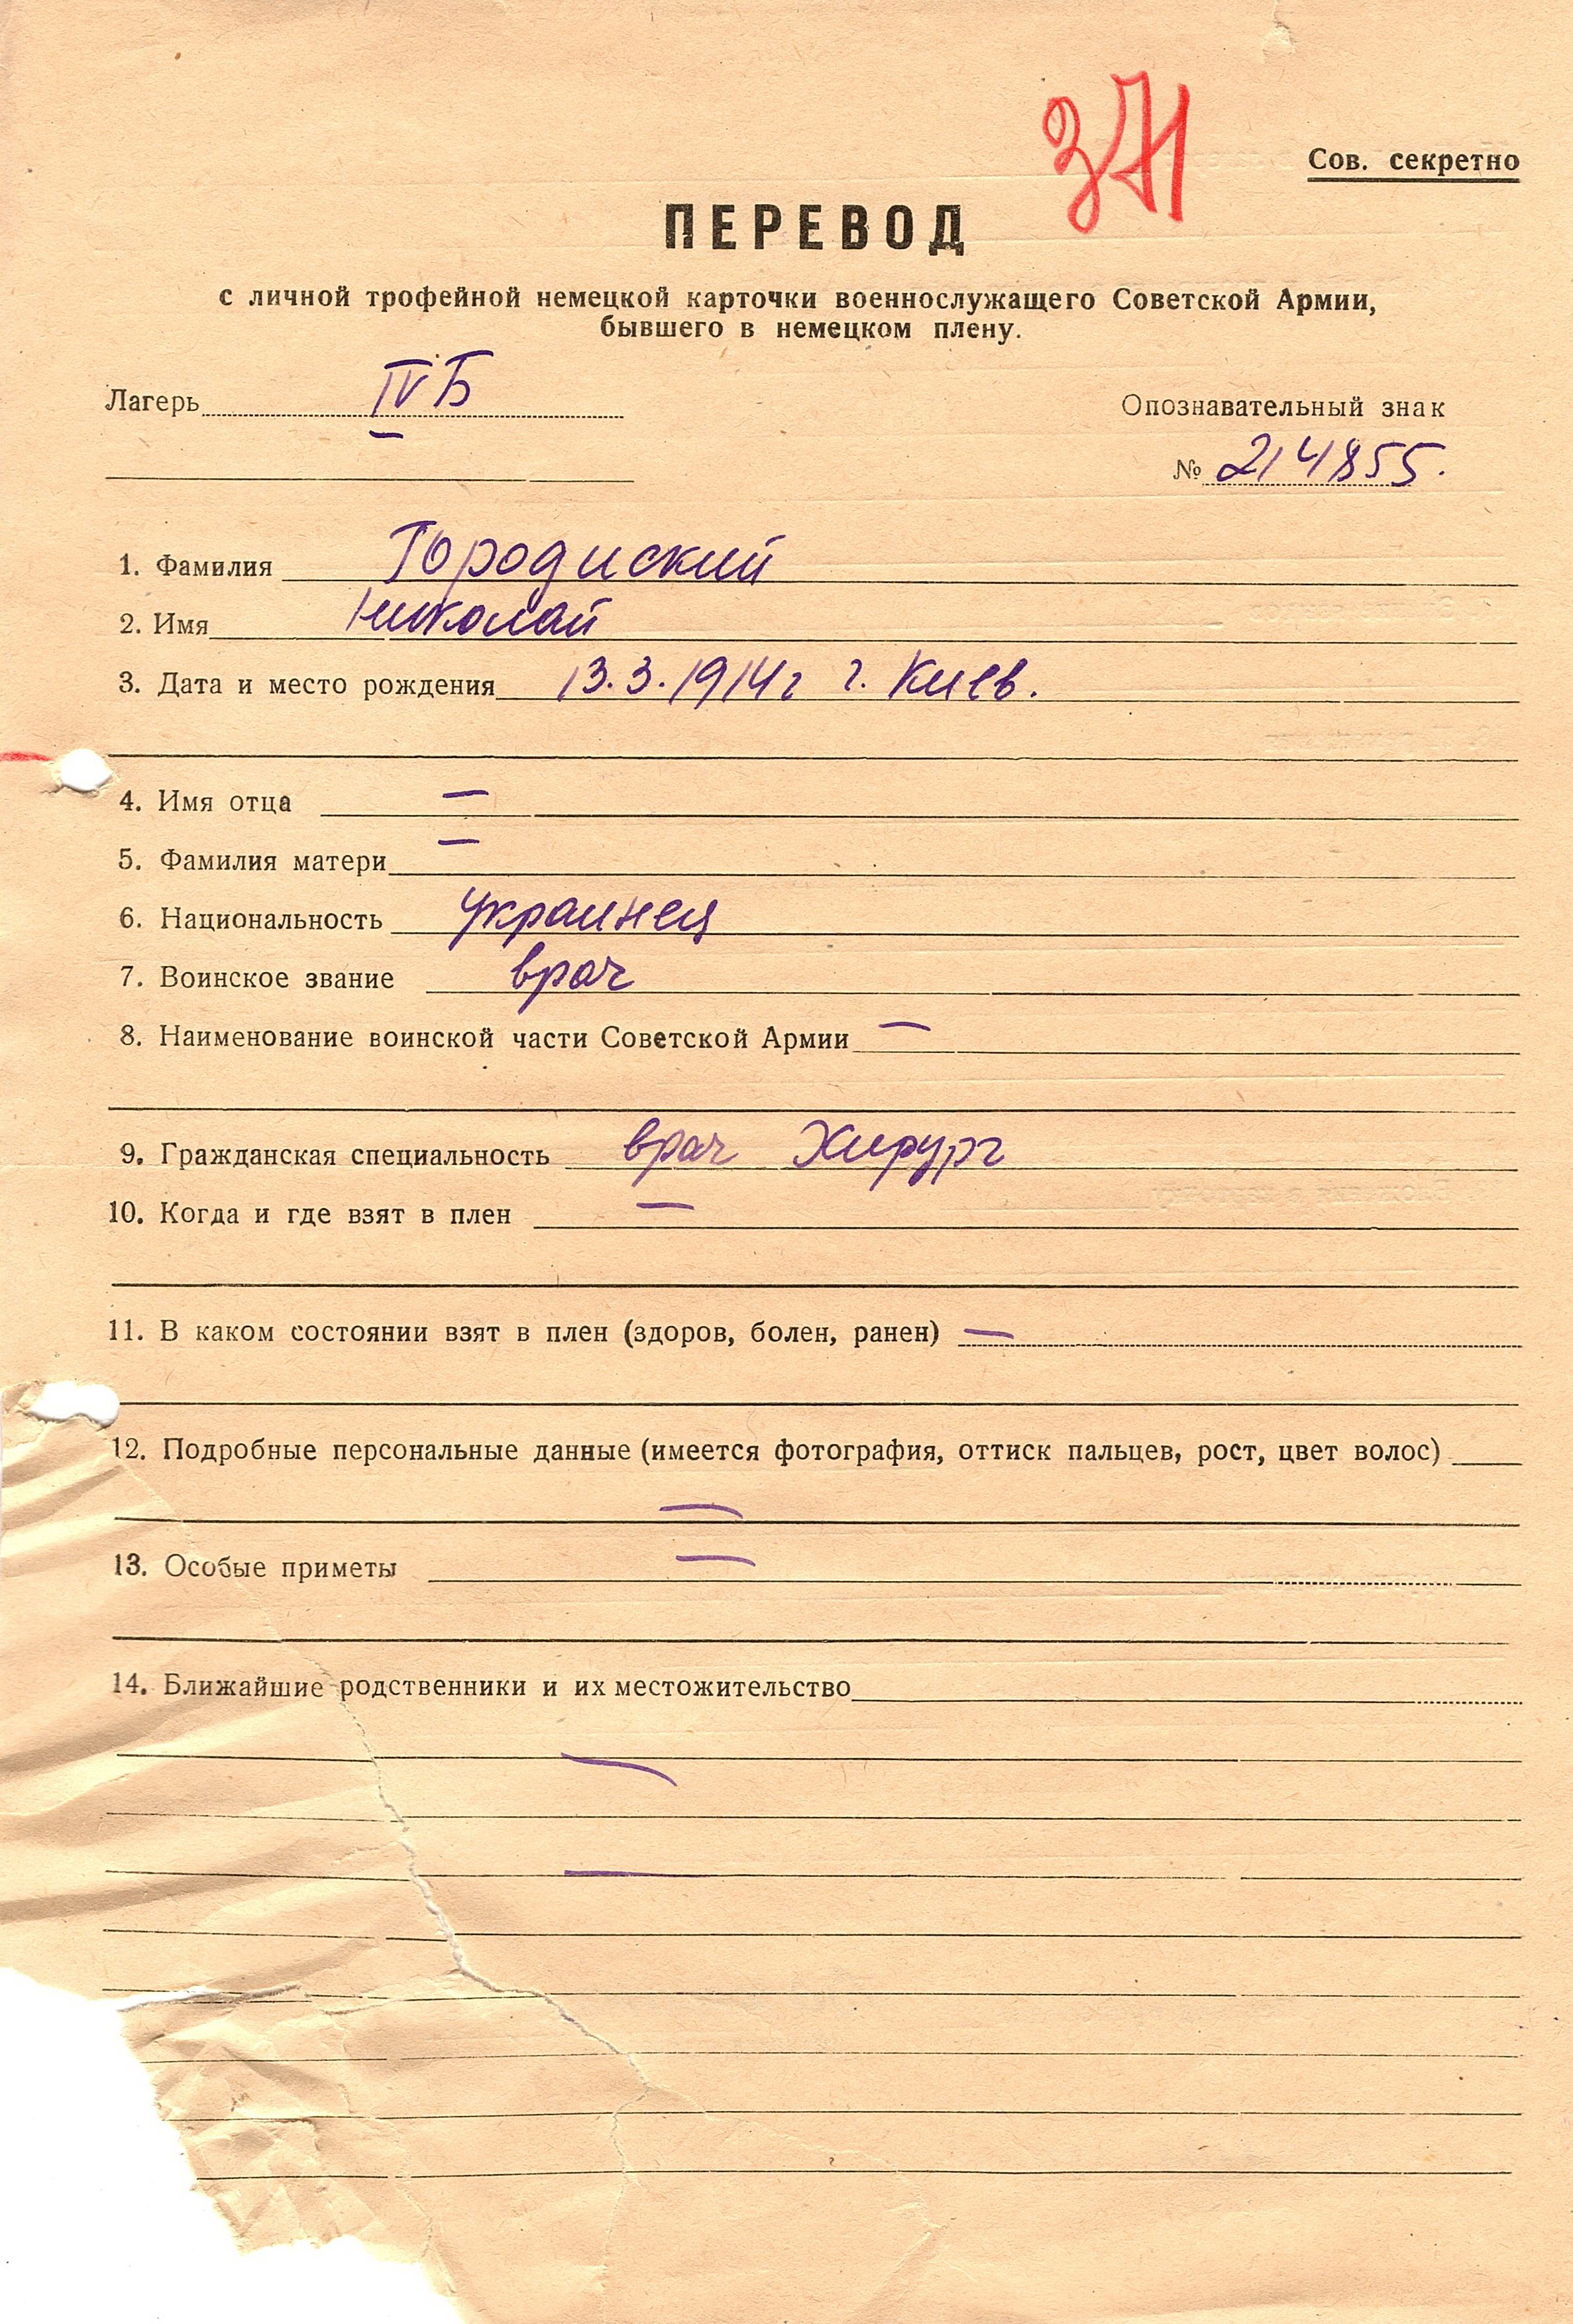 371
Сов. секретно
ПЕРЕВОД
с личной трофейной немецкой карточки военнослужащего Советской Армии,
бывшего в немецком плену.
Лагерь IV Б
Опознавательный знак
№ 214855.
1. Фамилия Городиский
2. Имя Николай
3. Дата и место рождения 13.3.1914г г. Киев.
4. Имя отца —
5. Фамилия матери —
6. Национальность украинец
7. Воинское звание врач
8. Наименование воинской части Советской Армии —
9. Гражданская специальность врач Хирург
10. Когда и где взят в плен —
11. В каком состоянии взят в плен (здоров, болен, ранен) —
12. Подробные персональные данные (имеется фотография, оттиск пальцев, рост, цвет волос)
—
13. Особые приметы —
14. Ближайшие родственники и их местожительство
—
—